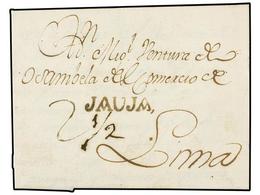 A D.n Mig.l Ventura de
Osambela del Comercio de
JAUJA,
2½
Lima